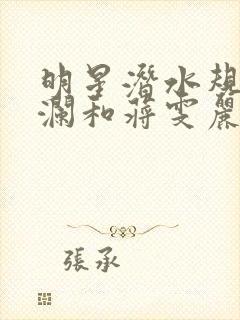 明星潜水規
瀾和蔣雯麗
張承